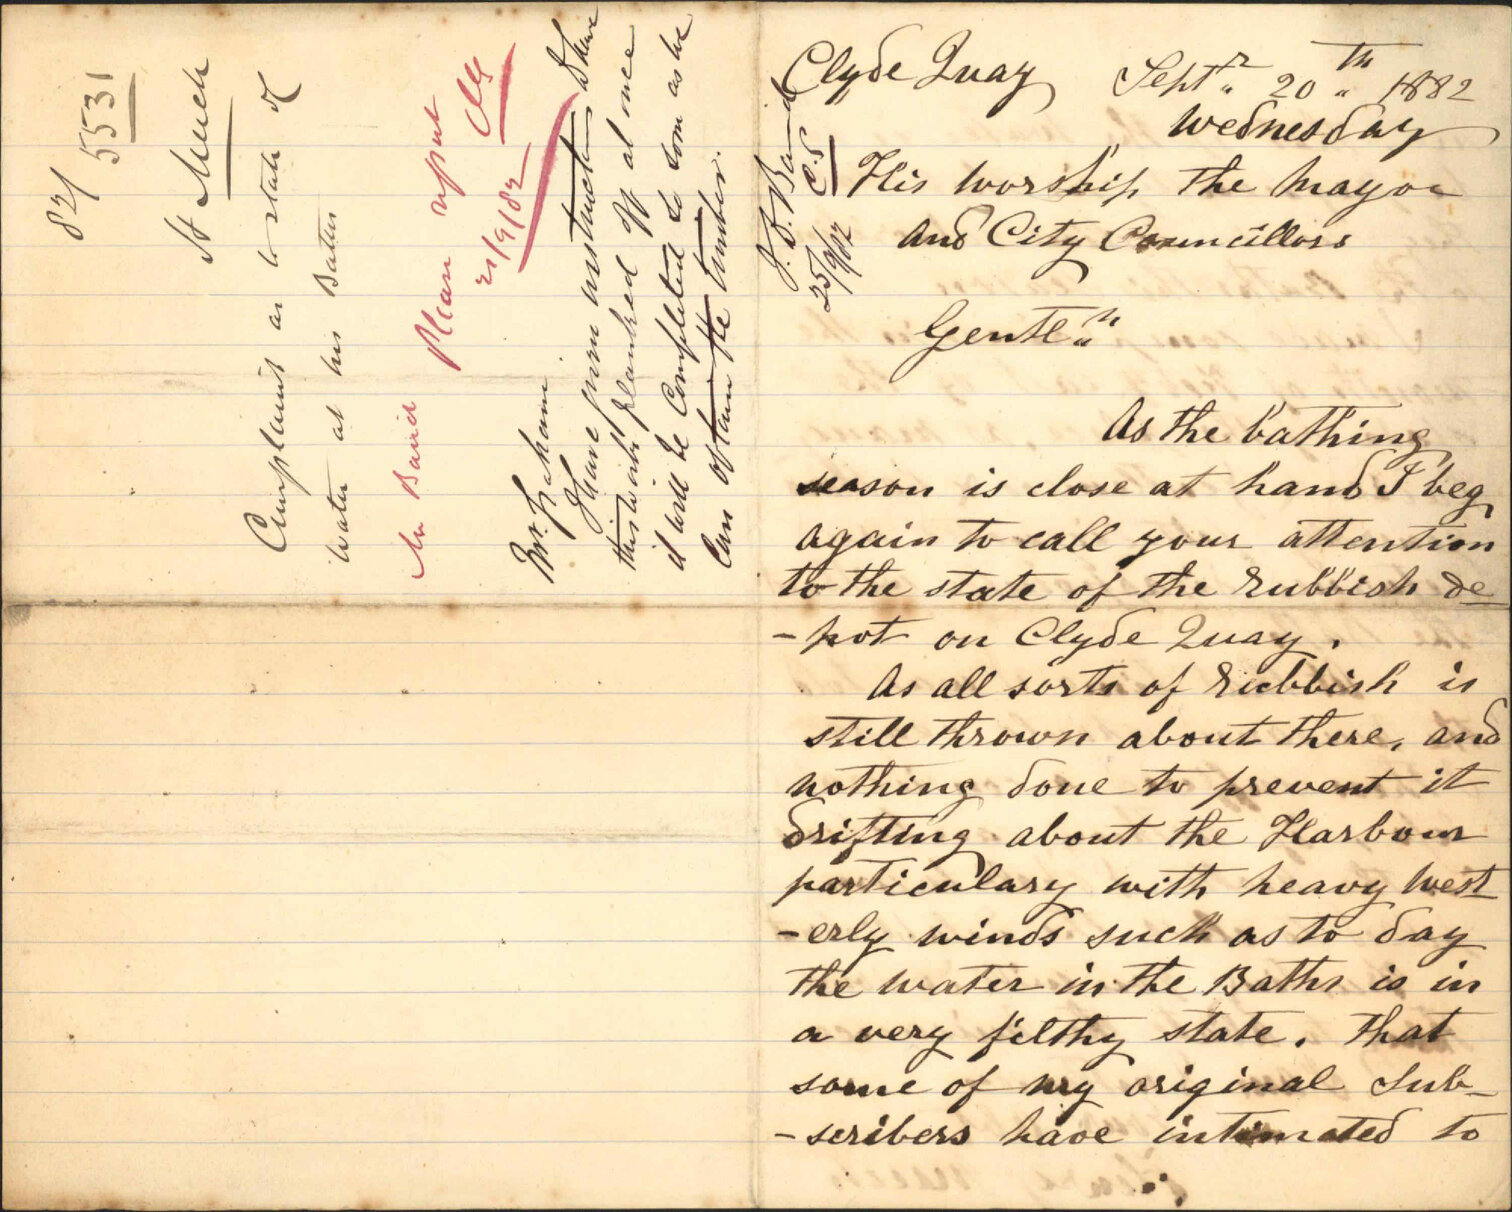 82/
5531
H Meech
Complaint as to state of
water at his Baths
Mr Baird
Please report
21/9/82
Mr. Graham
I have given instructions to have
this work planked off at once
it will be completed as soon as he
can obtain the timber.
J. D. Baird
C.S
25/9/82
Clyde Quay Septr 20th 1882
Wednesday
His Worship The Mayor
and City Councillors
Gentln
As the bathing
season is close at hand I beg
again to call your attention
to the state of the rubbish de
-pot on Clyde Quay.
As all sorts of rubbish is
still thrown about there, and
nothing done to prevent it
drifting about the Harbour
particulary with heavy West
-erly winds such as to day
the water in the Baths is in
a very filthy state. That
some of my original Sub-
-scribers have intimated to